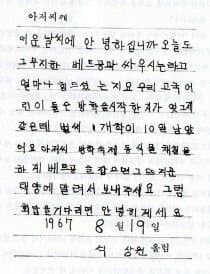 아저씨께
더운 날씨에 안녕하십니까 오늘도
그무지한 베트콩과 싸우시느라고
얼마나 힘드셨는지요 우리 고국 어
린이들은 방학을시작한지가 엊그제
같은데 벌써 개학이 10일 남았
어요 아저씨 방학숙제 좀
하지 베트콩을 잡으면 그
태양에 말려서 보내주세요 그럼
회답을기다리면 안녕히계세요
1967 8월 19일
석 상원 올림